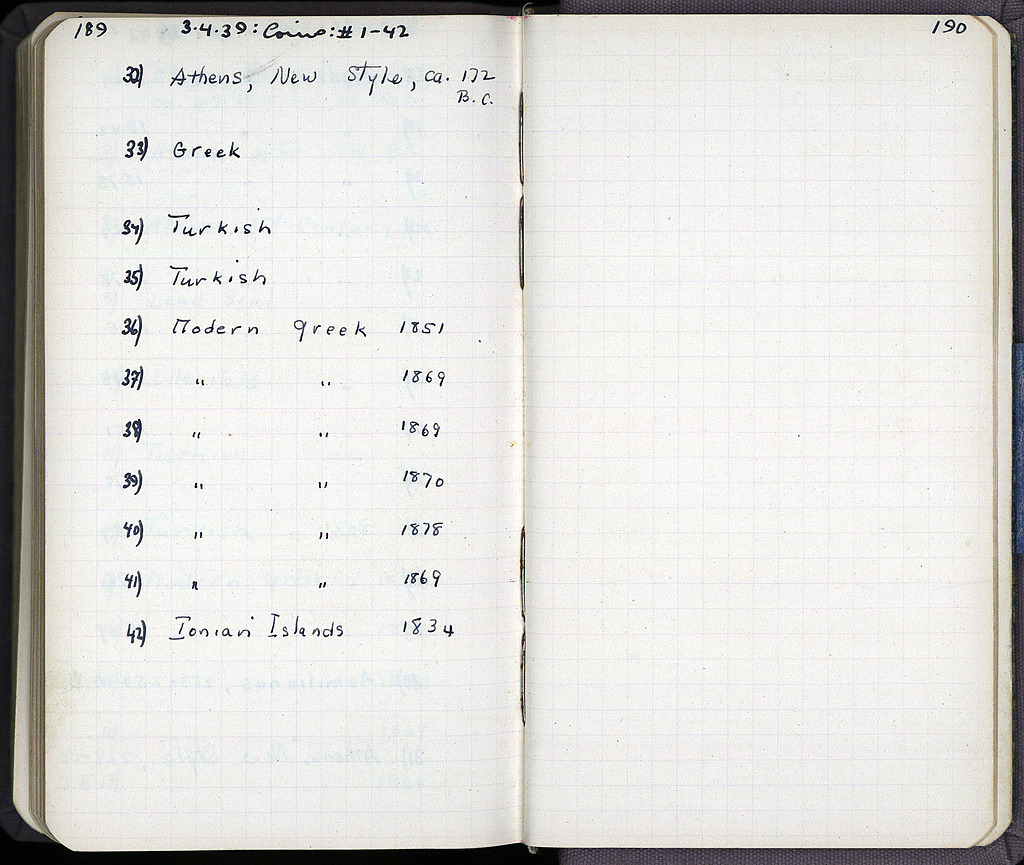 189 3.4.39: Coins: # 1-42
32) Athens, New Style, ca. 172
B.C.
33) Greek
34) Turkish
35) Turkish
36) Modern greek 1851
37) " " 1869
38) " " 1869
39) " " 1870
40) " " 1878
41) " " 1869
42) Ionian Islands 1834
190